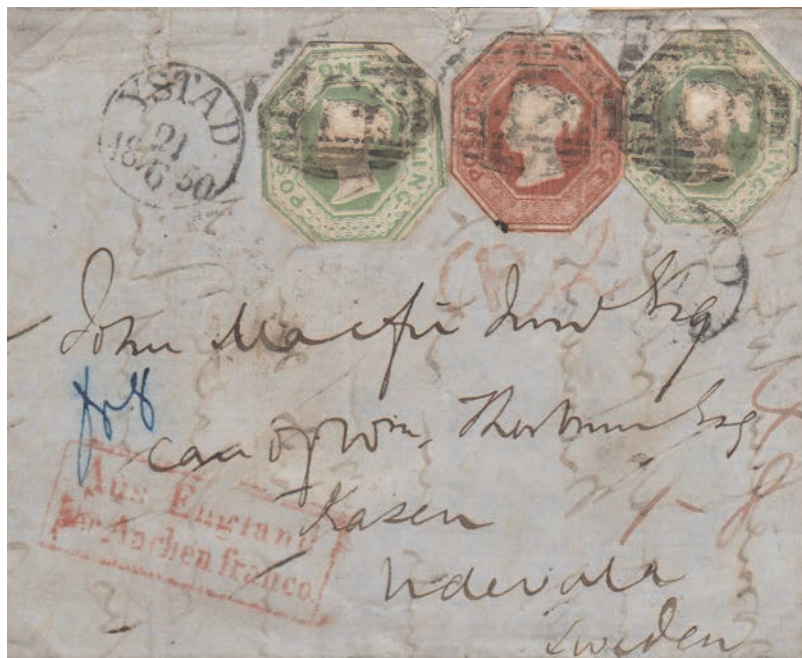 YSTAD
21
6
18 50
POSTAGE ONE SHILLING
POSTAGE PENCE
POSTAGE ONE SHILLING
John Macfie Junr Esq
care of Wm. Thorburn Esq
Kasen
Udevala
Sweden
Aus England
per Aachen franco